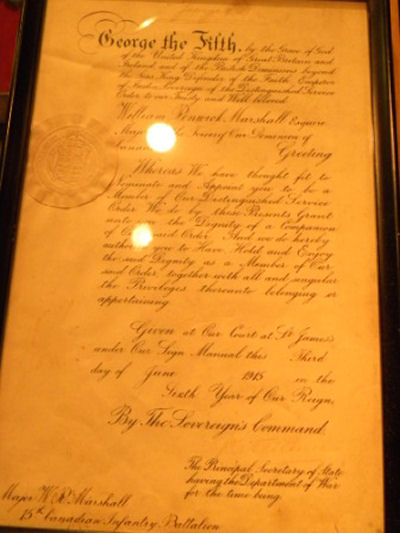 George the Fifth, by the Grace of God
of the United Kingdom of Great Britain and
Ireland and of the British Dominions beyond
the Seas King Defender of the Faith Emperor
of India Sovereign of the Distinguished Service
Order to our Trusty and Well beloved
William Renwick Marshall Esquire
Major Forces of Our Dominion of
Canada Greeting
Whereas We have thought fit to
Nominate and Appoint you to be a
Member of Our Distinguished Service
Order We do by these Presents Grant
unto you the Dignity of a Companion
of Our said Order And we do hereby
authorise you to Have Hold and Enjoy
the said Dignity as a Member of Our
said Order, together with all and singular
the Privileges thereunto belonging or
appertaining
Given at Our Court at St James's
under Our Sign Manual this Third
day of June 1915 in the
Sixth Year of Our Reign.
By The Sovereign's Command.
The Principal Secretary of State
having the Department of War
for the time being.
Major W. R. Marshall
15th Canadian Infantry Battalion